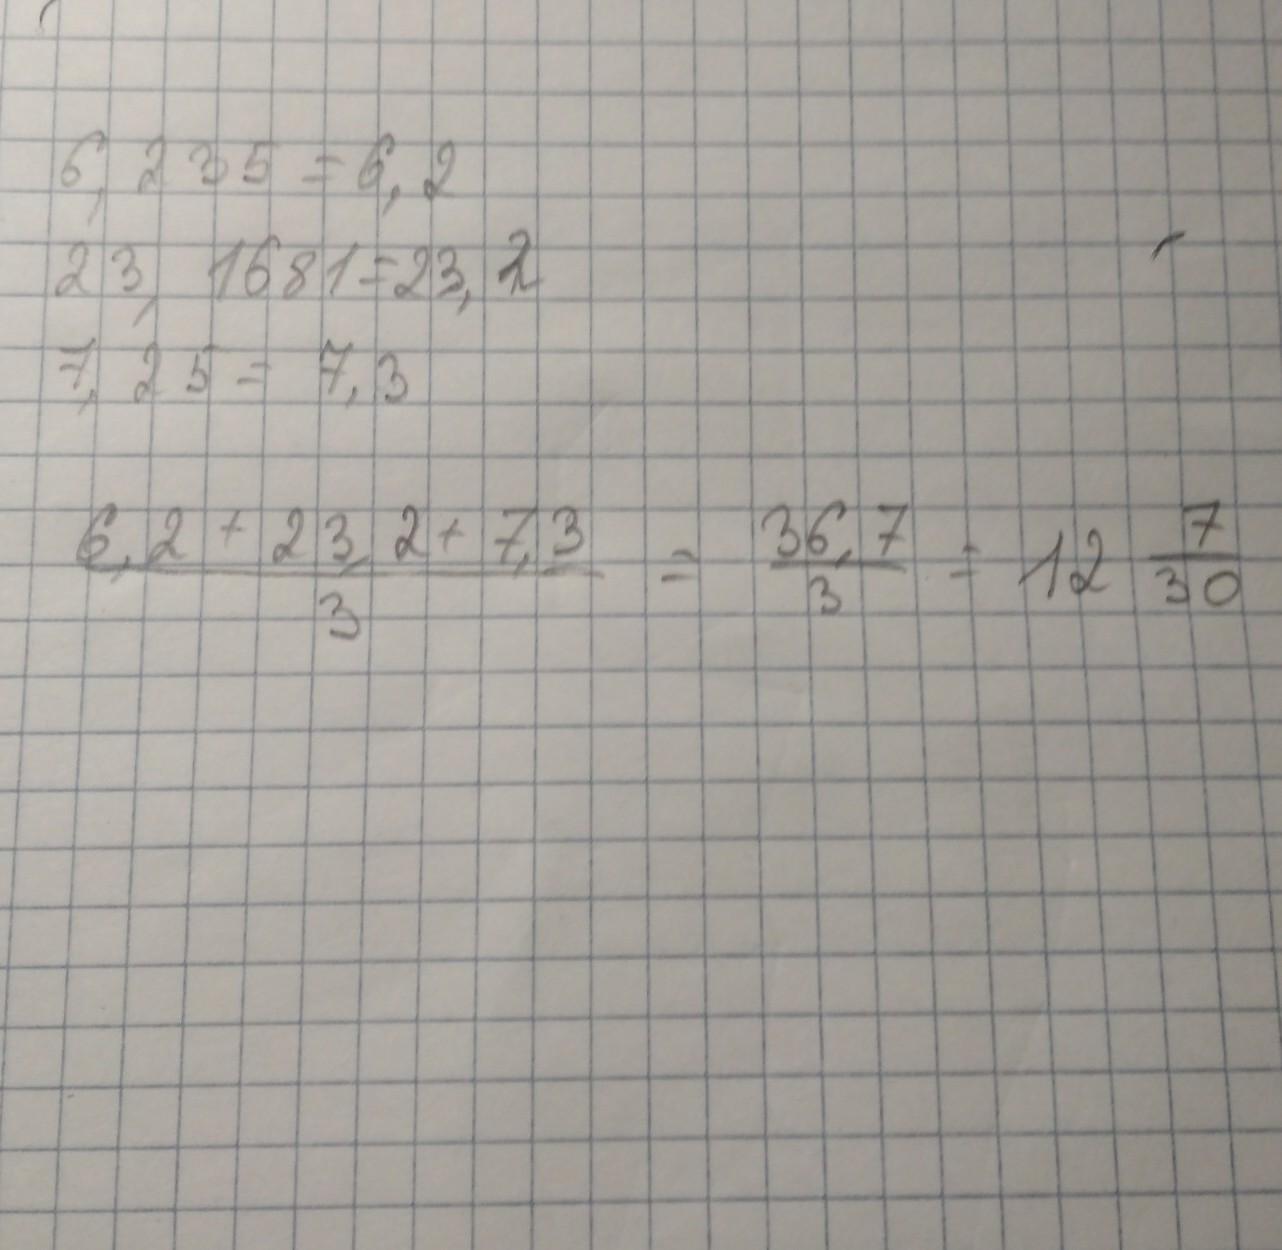 6,235 = 6,2
23,1681 = 23,2
7,25 = 7,3
6,2 + 23,2 + 7,3 / 3 = 36,7 / 3 = 12 7/30